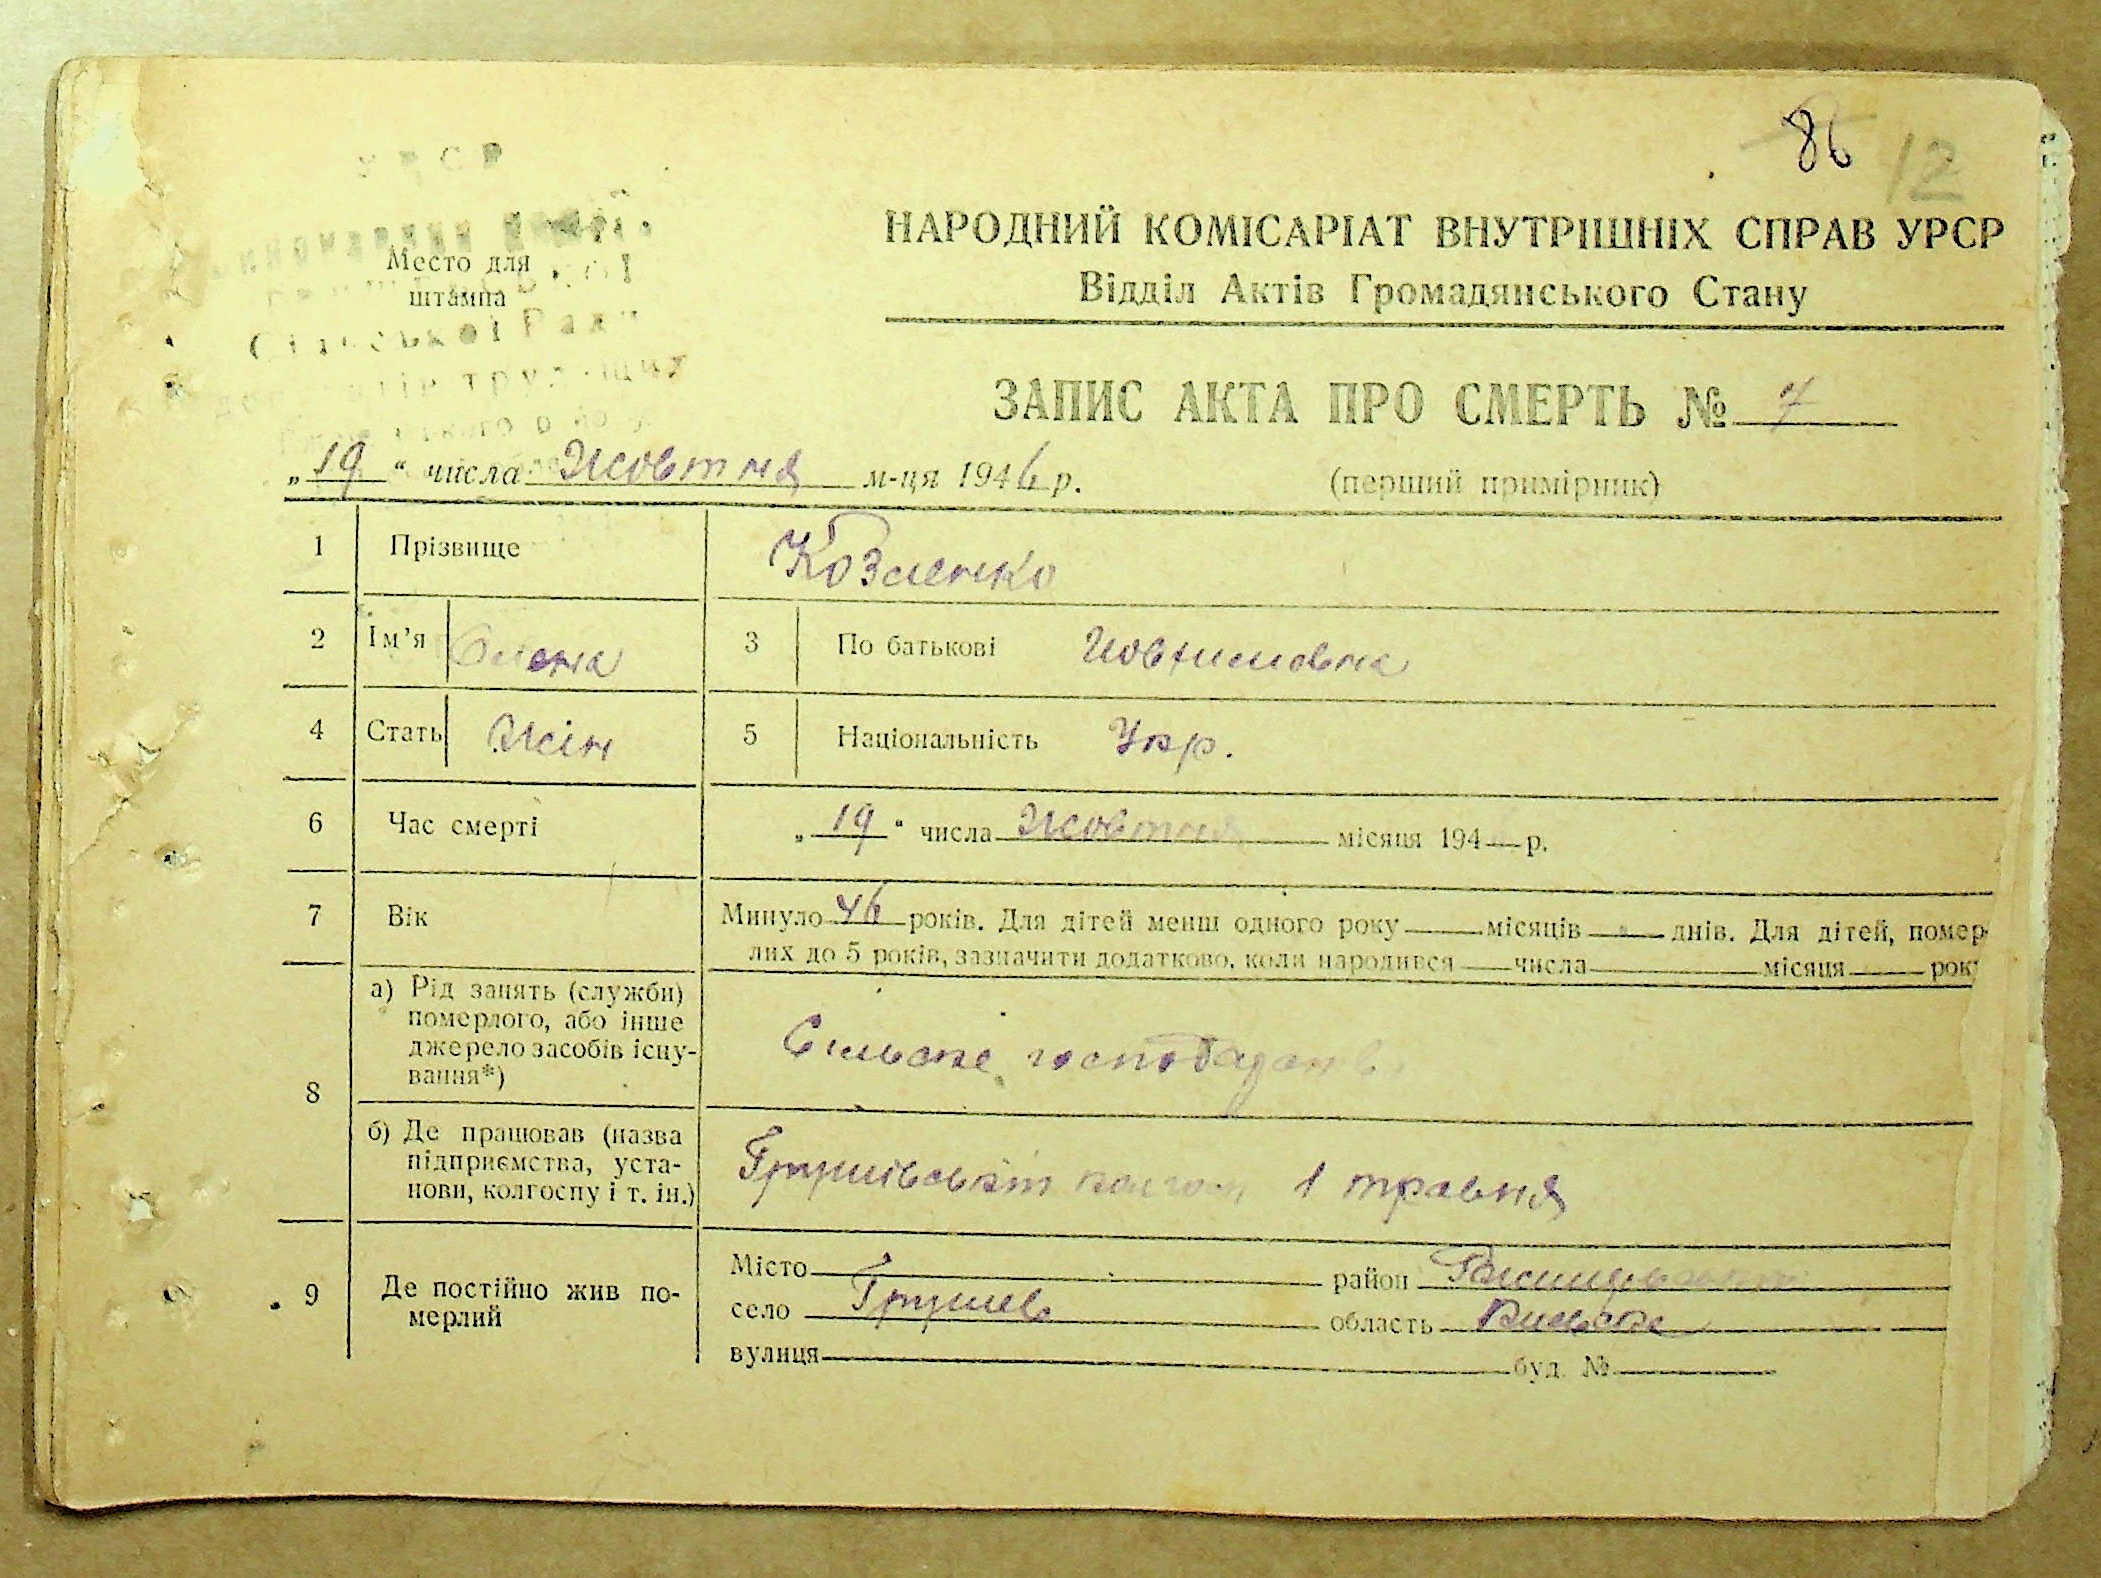 86 12
УРСР
НАРОДНИЙ КОМІСАРІАТ ВНУТРІШНІХ СПРАВ УРСР
Место для
штампа
Відділ Актів Громадянського Стану
Сільської Ради
ЗАПИС АКТА ПРО СМЕРТЬ № 7
„19“ числа Жовтня м-ця 1946 р.
(перший примірник)
1 Прізвище Козленко
2 Ім’я Олена 3 По батькові
4 Стать Жін 5 Національність Укр.
6 Час смерті „19“ числа Жовтня місяця 194 р.
7 Вік Минуло 46 років. Для дітей менш одного року місяців днів. Для дітей, помер-
лих до 5 років, зазначити додатково, коли народився числа місяця року
8 а) Рід занять (служби)
померлого, або інше
джерело засобів існу-
вання*)
Сильске господар
б) Де працював (назва
підприємства, уста-
нови, колгоспу і т. ін.)
1 травня
9 Де постійно жив по-
мерлий
Місто район
село Грушев область Киевске
вулиця буд. №